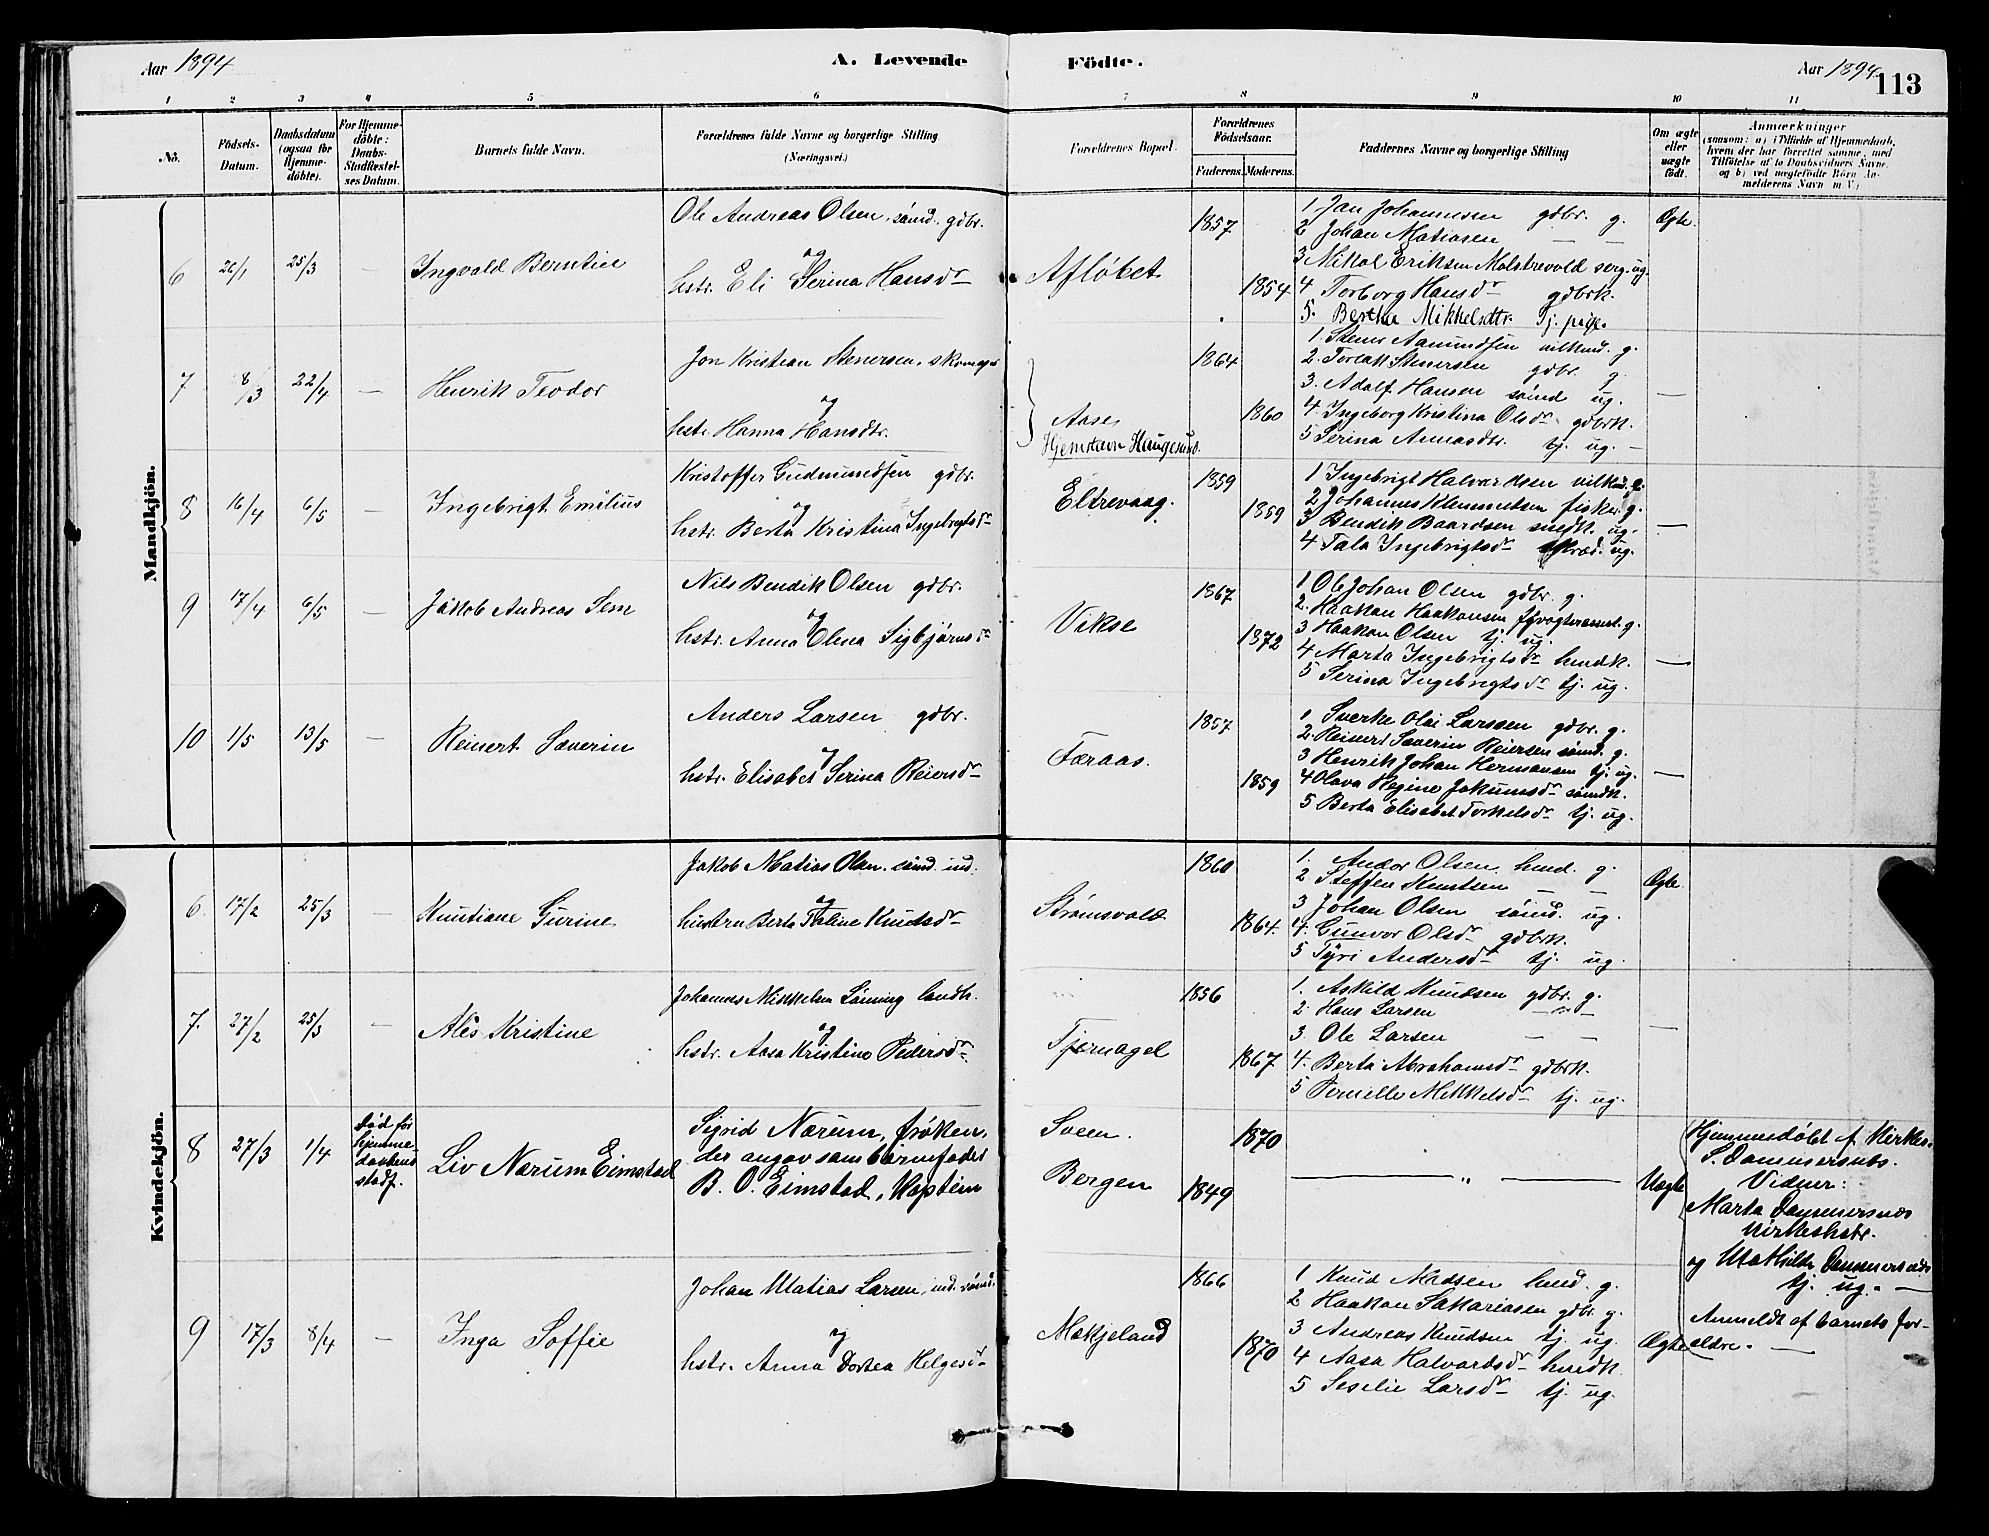 Aar 1894
A. Levende
Födte.
Aar 1894
113
1 2 3 4 5 6 7 8 9 10 11
No.
Födsels-Datum.
Daabsdatum (ogsaa for Hjemme-döbte).
For Hjemme-döbte: Daabs-Stadfæstel-ses Datum.
Barnets fulde Navn.
Forældrenes fulde Navne og borgerlige Stilling. (Næringsvei.)
Forældrenes Bopæl.
Forældrenes Födselsaar.
Faderens. Moderens.
Faddernes Navne og borgerlige Stilling
Om ægte eller uægte födt.
Anmærkninger
(saasom: a) i Tilfælde af Hjemmedaab, hvem der har forrettet samme, med Tilföielse af to Daabsvidners Navne, og b) ved uægtefödte Börn An-melderens Navn m. V.)
Mandkjön.
6 26/1 25/3 — Ingvald Berntin
Ole Andreas Olsen, sömd. gdbr.
og
hstr. Eli Serina Hansdr
Aflöbet
1857
1854
1 Jan Johannesen gdbr. g.
2 Johan Matiasen — —
3 Mikal Eriksen Molstrevold serg. ug.
4 Torborg Hansdr gdbrk.
5. Berthe Mikkelsdtr. Tj. pige.
Ægte.
7 8/3 22/4 — Henrik Teodor
Jon Kristian Stenersen, skomager
og
hstr. Hanna Hansdtr.
Aase,
Hjemstavn Haugesund.
1864
1860
1. Stener Aamundsen vilkmd. g.
2. Torlak Stenersen gdbr. g.
3. Adolf Hansen sömd ug.
4. Ingeborg Kristina Olsdr gdbrk.
5 Serina Annasdtr. tj. ug.
—
8 16/4 6/5 — Ingebrigt Emilius
Kristoffer Gudmundsen gdbr.
og
hstr. Berta Kristina Ingebrigtsdr
Eltrevaag.
1859
1859
1 Ingebrigt Halvardsen vilkmd. g.
2 Johannes Klemmetsen fisker. g.
3 Bendik Baardsen snedk. ug.
4 Tala Ingebrigtsdr skræd. ug.
—
9 17/4 6/5 — Jakob Andreas Sem
Nils Bendik Olsen gdbr.
og
hstr. Anna Olena Sigbjörnsdr
Vikse
1867
1872
1 Ole Johan Olsen gdbr. g.
2. Haakon Haakonsen g.
3 Haakon Olsen tj. ug.
4 Marta Ingebrigtsdr hmdk.
5 Serina Ingebrigtsdr tj. ug.
—
10 1/5 13/5 — Reinert Severin
Anders Larsen gdbr.
og
hstr. Elisabet Serina Reiersdr
Færaas.
1857
1859
1. Sverke Olai Larssen gdbr. g.
2. Reinert Severin Reiersen sömd. g.
3 Henrik Johan Hermansen tj. ug.
4 Olava Regine Jokumsdr sömdk.
5 Berta Elisabet Torkelsdr tj. ug.
—
Kvindekjön.
6. 17/2 25/3 — Knutiane Gurine
Jakob Matias Olsen. sömd. ind.
og
hustru Berta Taline Knudsdr
Strömsvold
1860
1864.
1. Andor Olsen hmd. g.
2 Steffen Knutsen — —
3 Johan Olsen sömd. ug.
4. Gunvor Olsdr gdbrk.
5 Tyri Andersdr tj. ug.
Ægte.
7. 27/2 25/3 — Ales Kristine
Johannes Mikkelsen Lönning landh.
og
hstr. Aasa Kristine Pedersdr
Tjernagel
1856
1867
1. Askild Knudsen gdbr. g.
2. Hans Larsen — —
3. Ole Larsen — —
4. Berta Abrahamsdr gdbrk.
5 Pernille Mikkelsdr tj. ug.
—
8 27/3 1/4
död för
hjemme-
daabens
stadf.
Liv Nærum Eimstad
Sigrid Nærum, fröken,
der angav som barnefader
B. O. Eimstad, Kaptein
Sveen.
Bergen
1870
1849
— " —
Uægte
Hjemmedöbt af kirkes.
S. Dommersnes.
Vidner:
Marta Dommersnes
kirkeshstr.
og Mathilde Dommersnes
tj. ug. —
Anmeldt af barnets for-
ældre. —
9 17/3 8/4 — Inga Soffie
Johan Matias Larsen, ind. sömd.
og
hstr. Anna Dortea Helgesdr
Mækjeland
1866
1870
1 Knud Madsen hmd. g.
2 Haakon Sakariasen gdbr. g.
3 Andreas Knudsen tj. ug.
4 Aasa Halvardsdr hmdk.
5 Seselie Larsdr tj. ug.
Ægte